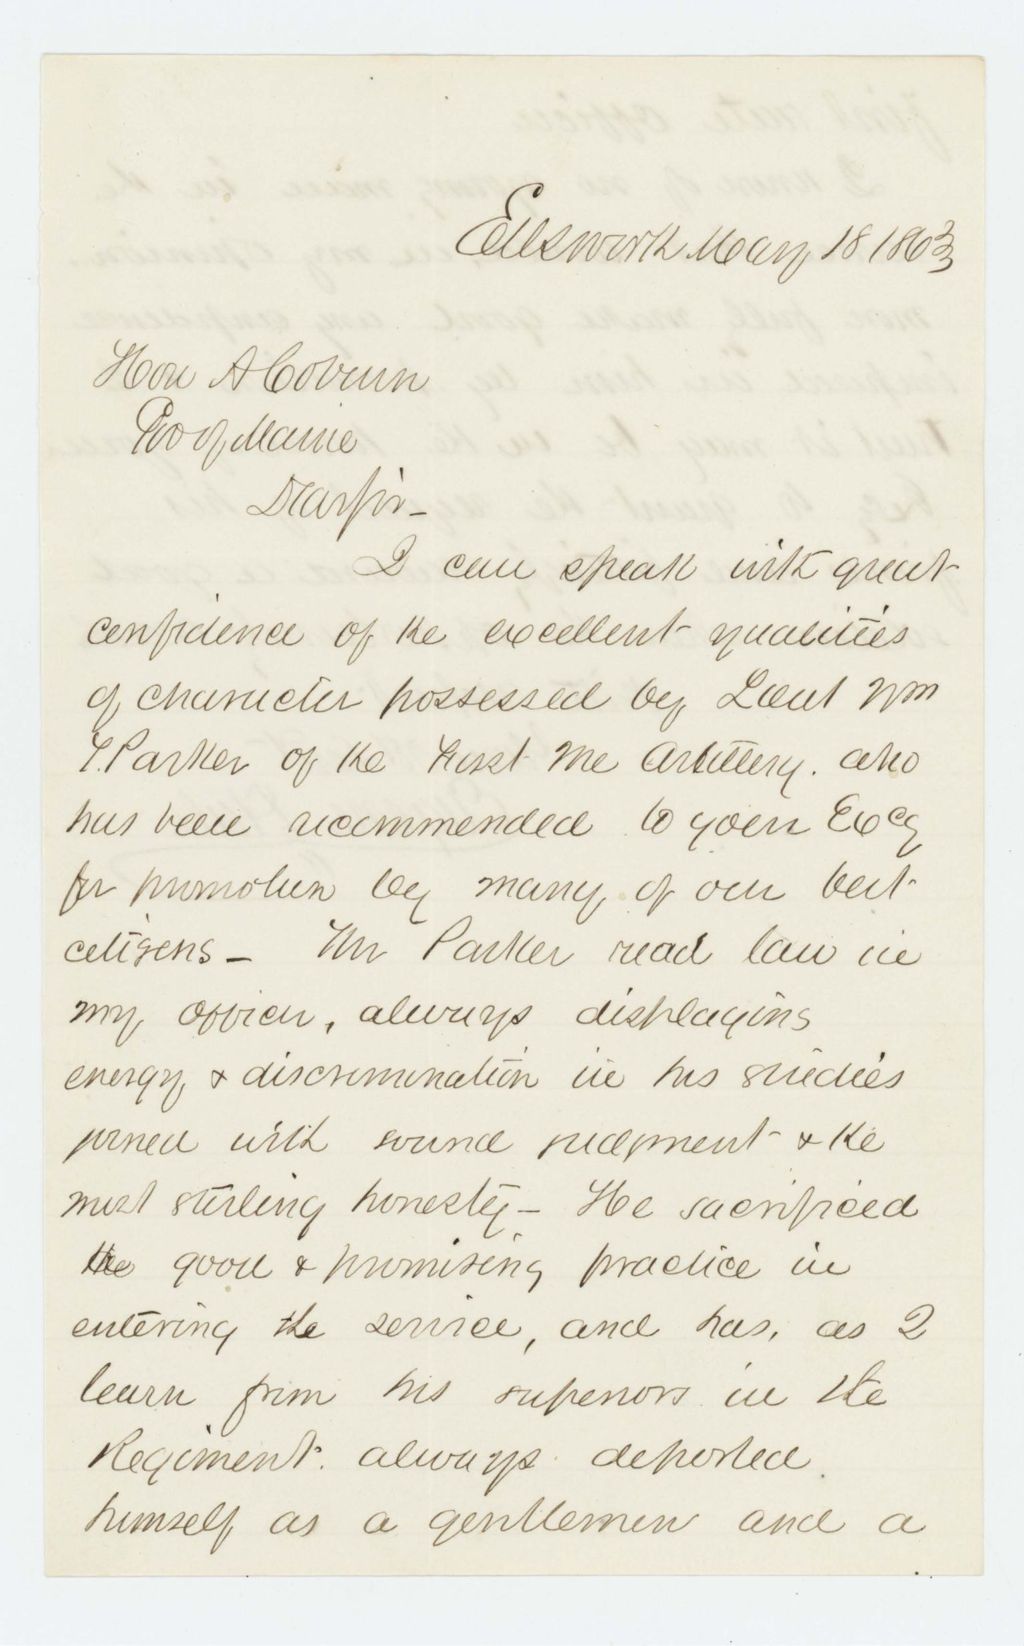 Ellsworth May 18 1863
Hon A Coburn
Gov of Maine
Dear Sir -
I can speak with great
confidence of the excellent qualities
of character possessed by Lieut Wm
T. Parker of the First Me Artillery. who
has been recommended to your Excy
for promotion by many of our best
citizens - Mr Parker read law in
my office, always displaying
energy & discrimination in his studies
joined with sound judgment & the
most sterling honesty - He sacrificed
the good & promising practice in
entering the service, and has, as I
learn from his superiors in the
Regiment. always deported
himself as a gentlemen and a